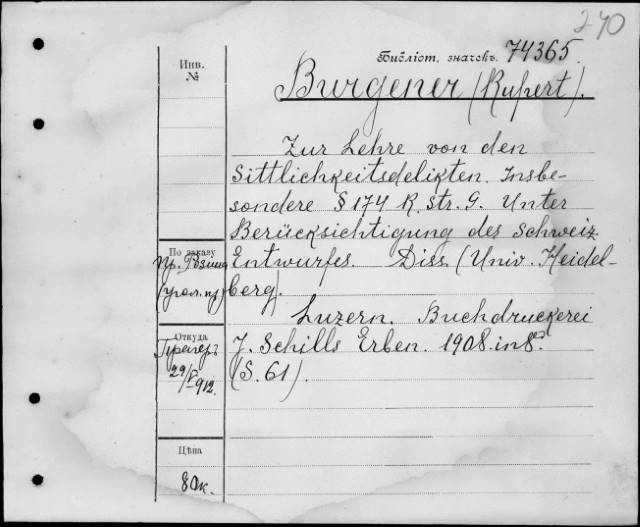 270
Библіот. значекъ 74365.
Burgener (Rupert).
Инв.
№
Zur Lehre von den
Sittlichkeitsdelikten. Insbe-
sondere § 174 R. Str. G. Unter
Berücksichtigung des Schweiz.
Entwurfes. Diss. (Univ. Heidel-
berg).
Luzern. Buchdruckerei
J. Schills Erben. 1908. in 8º.
(S. 61).
По заказу
Пр.
Откуда
29/V 912.
Цѣна
80к.